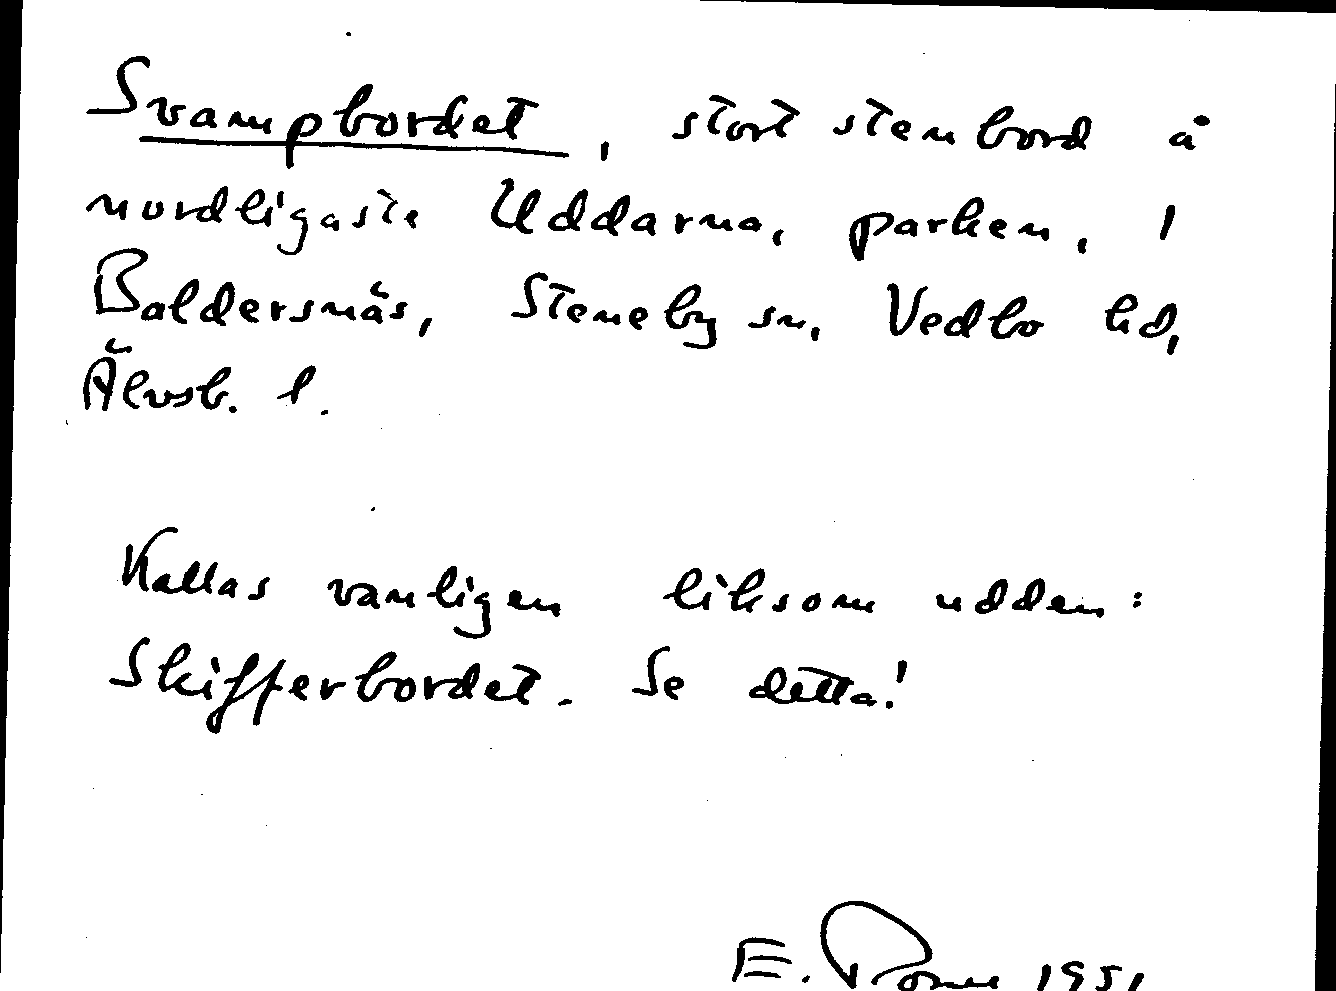 Svampbordet, stort stenbord å
nordligaste Uddarna, parken, i
Baldersnäs, Steneby sn, Vedbo hd,
Älvsb. l.
Kallas vanligen liksom udden:
Skifferbordet. Se detta!
E. 1951